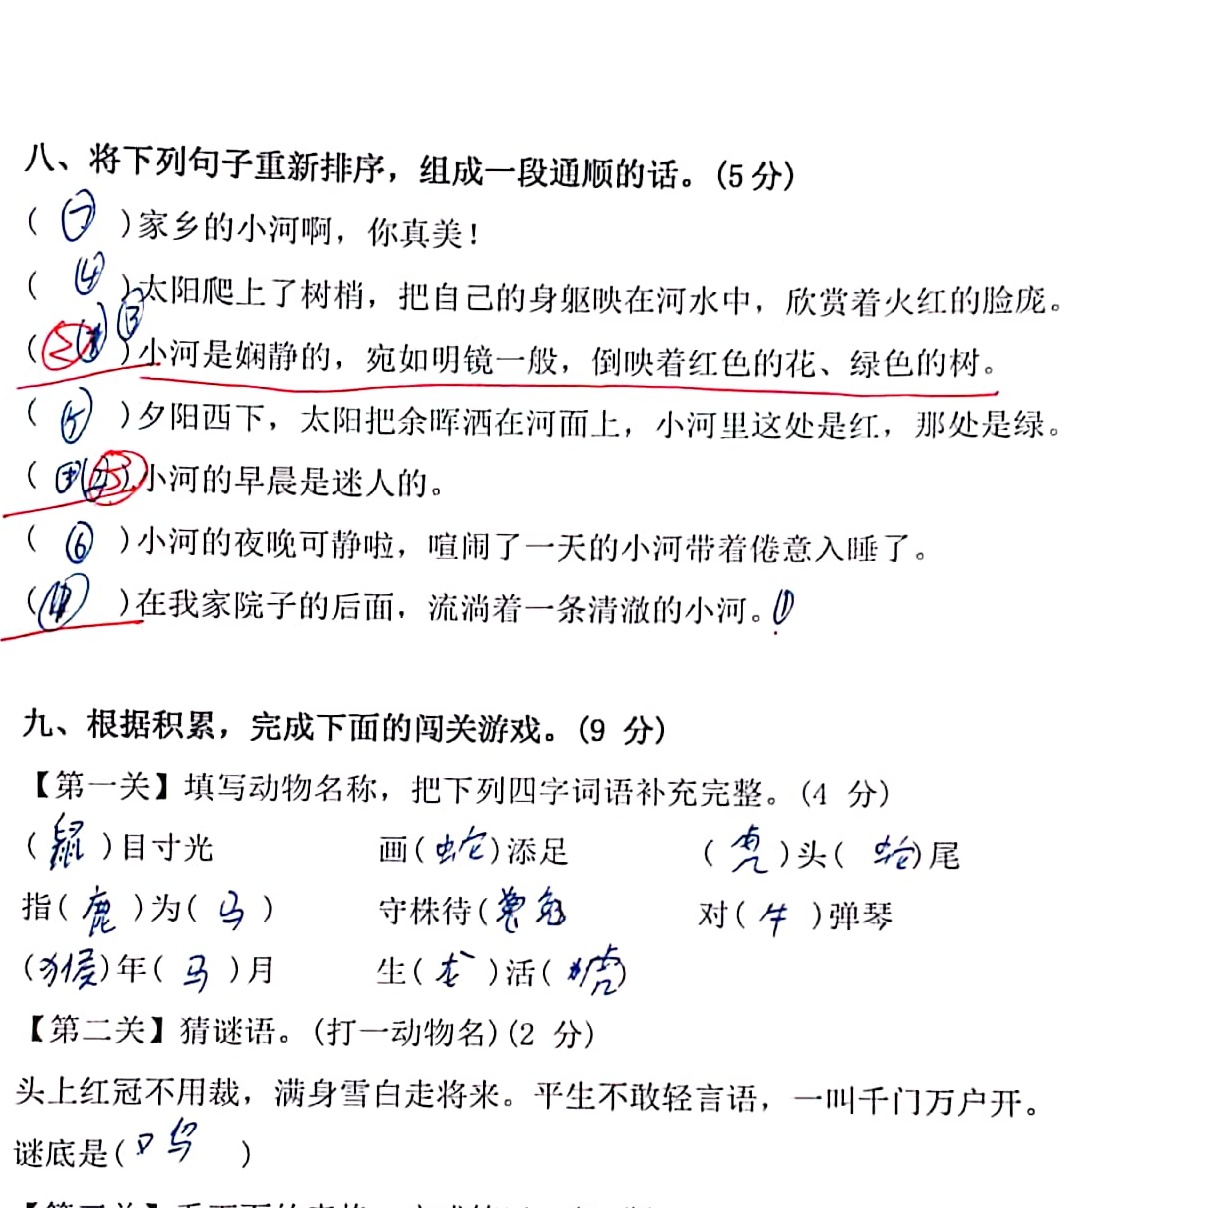 八、将下列句子重新排序，组成一段通顺的话。(5分)
(⑦)家乡的小河啊，你真美！
(④)太阳爬上了树梢，把自己的身躯映在河水中，欣赏着火红的脸庞。
(②③)小河是娴静的，宛如明镜一般，倒映着红色的花、绿色的树。
(⑤)夕阳西下，太阳把余晖洒在河面上，小河里这处是红，那处是绿。
(②③)小河的早晨是迷人的。
(⑥)小河的夜晚可静啦，喧闹了一天的小河带着倦意入睡了。
( )在我家院子的后面，流淌着一条清澈的小河。①
九、根据积累，完成下面的闯关游戏。(9 分)
【第一关】填写动物名称，把下列四字词语补充完整。(4 分)
(鼠)目寸光 画(蛇)添足 (虎)头(蛇)尾
指(鹿)为(马) 守株待(兔 对(牛)弹琴
(猴)年(马)月 生(龙)活(虎)
【第二关】猜谜语。(打一动物名)(2 分)
头上红冠不用裁，满身雪白走将来。平生不敢轻言语，一叫千门万户开。
谜底是(鸡)